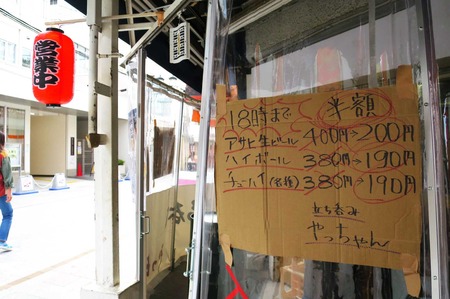 営業中
18時まで 半額
アサヒ生ビール 400円→200円
ハイボール 380円→190円
チューハイ(各種) 380円→190円
立ち呑み
やっちゃん